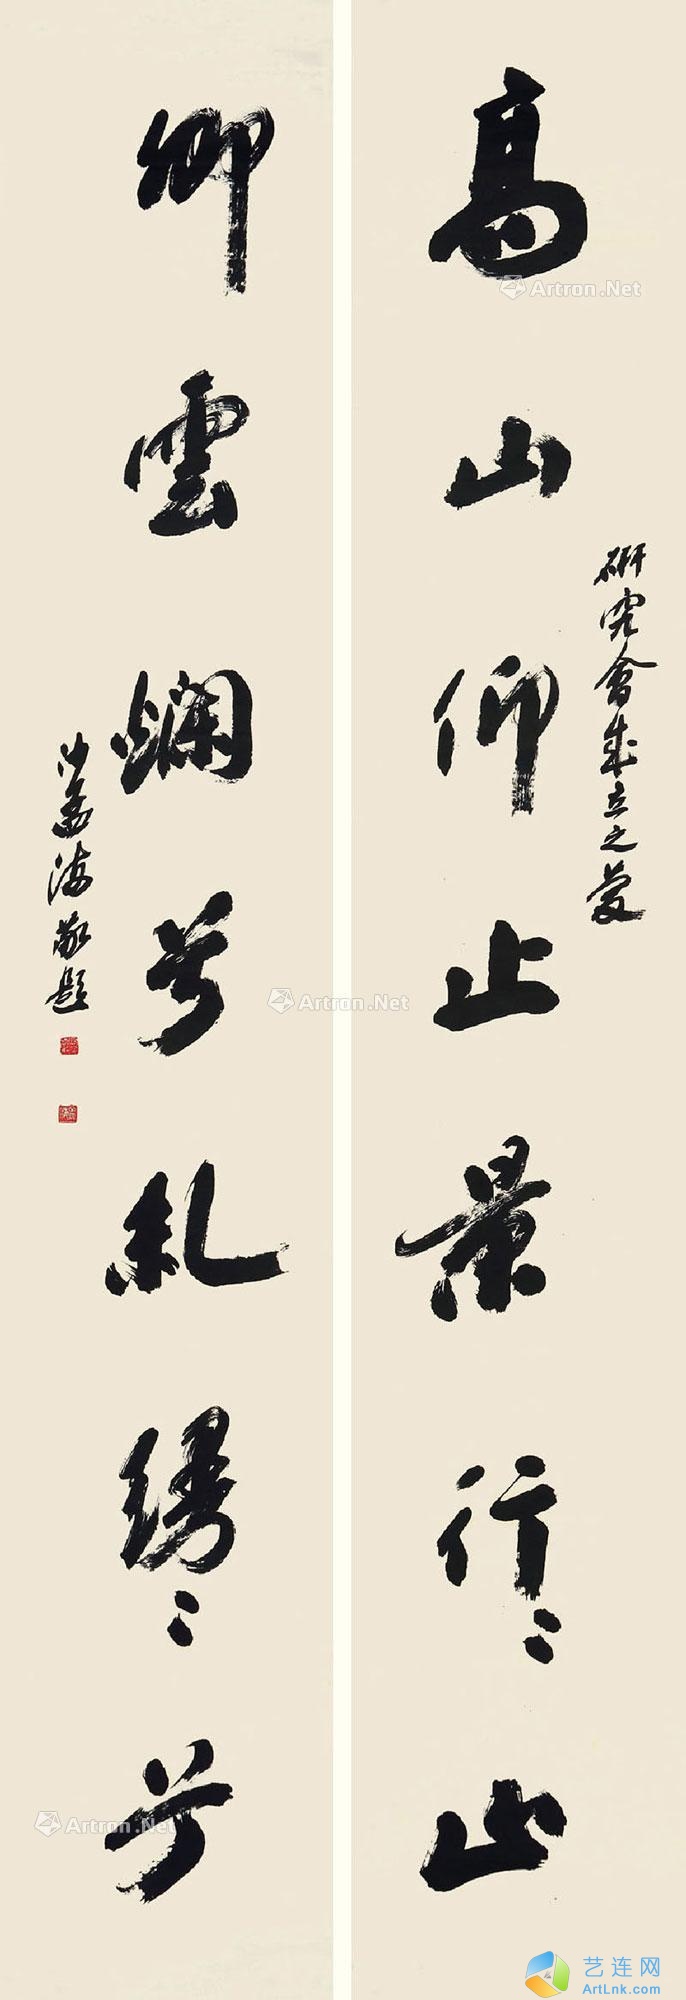 高山仰止景行行止
研究會成立之慶
卿雲爛兮糺縵縵兮
沙孟海敬題
Artron.Net
Artron.Net
Artron.Net
Artron.Net
艺连网
ArtLnk.com